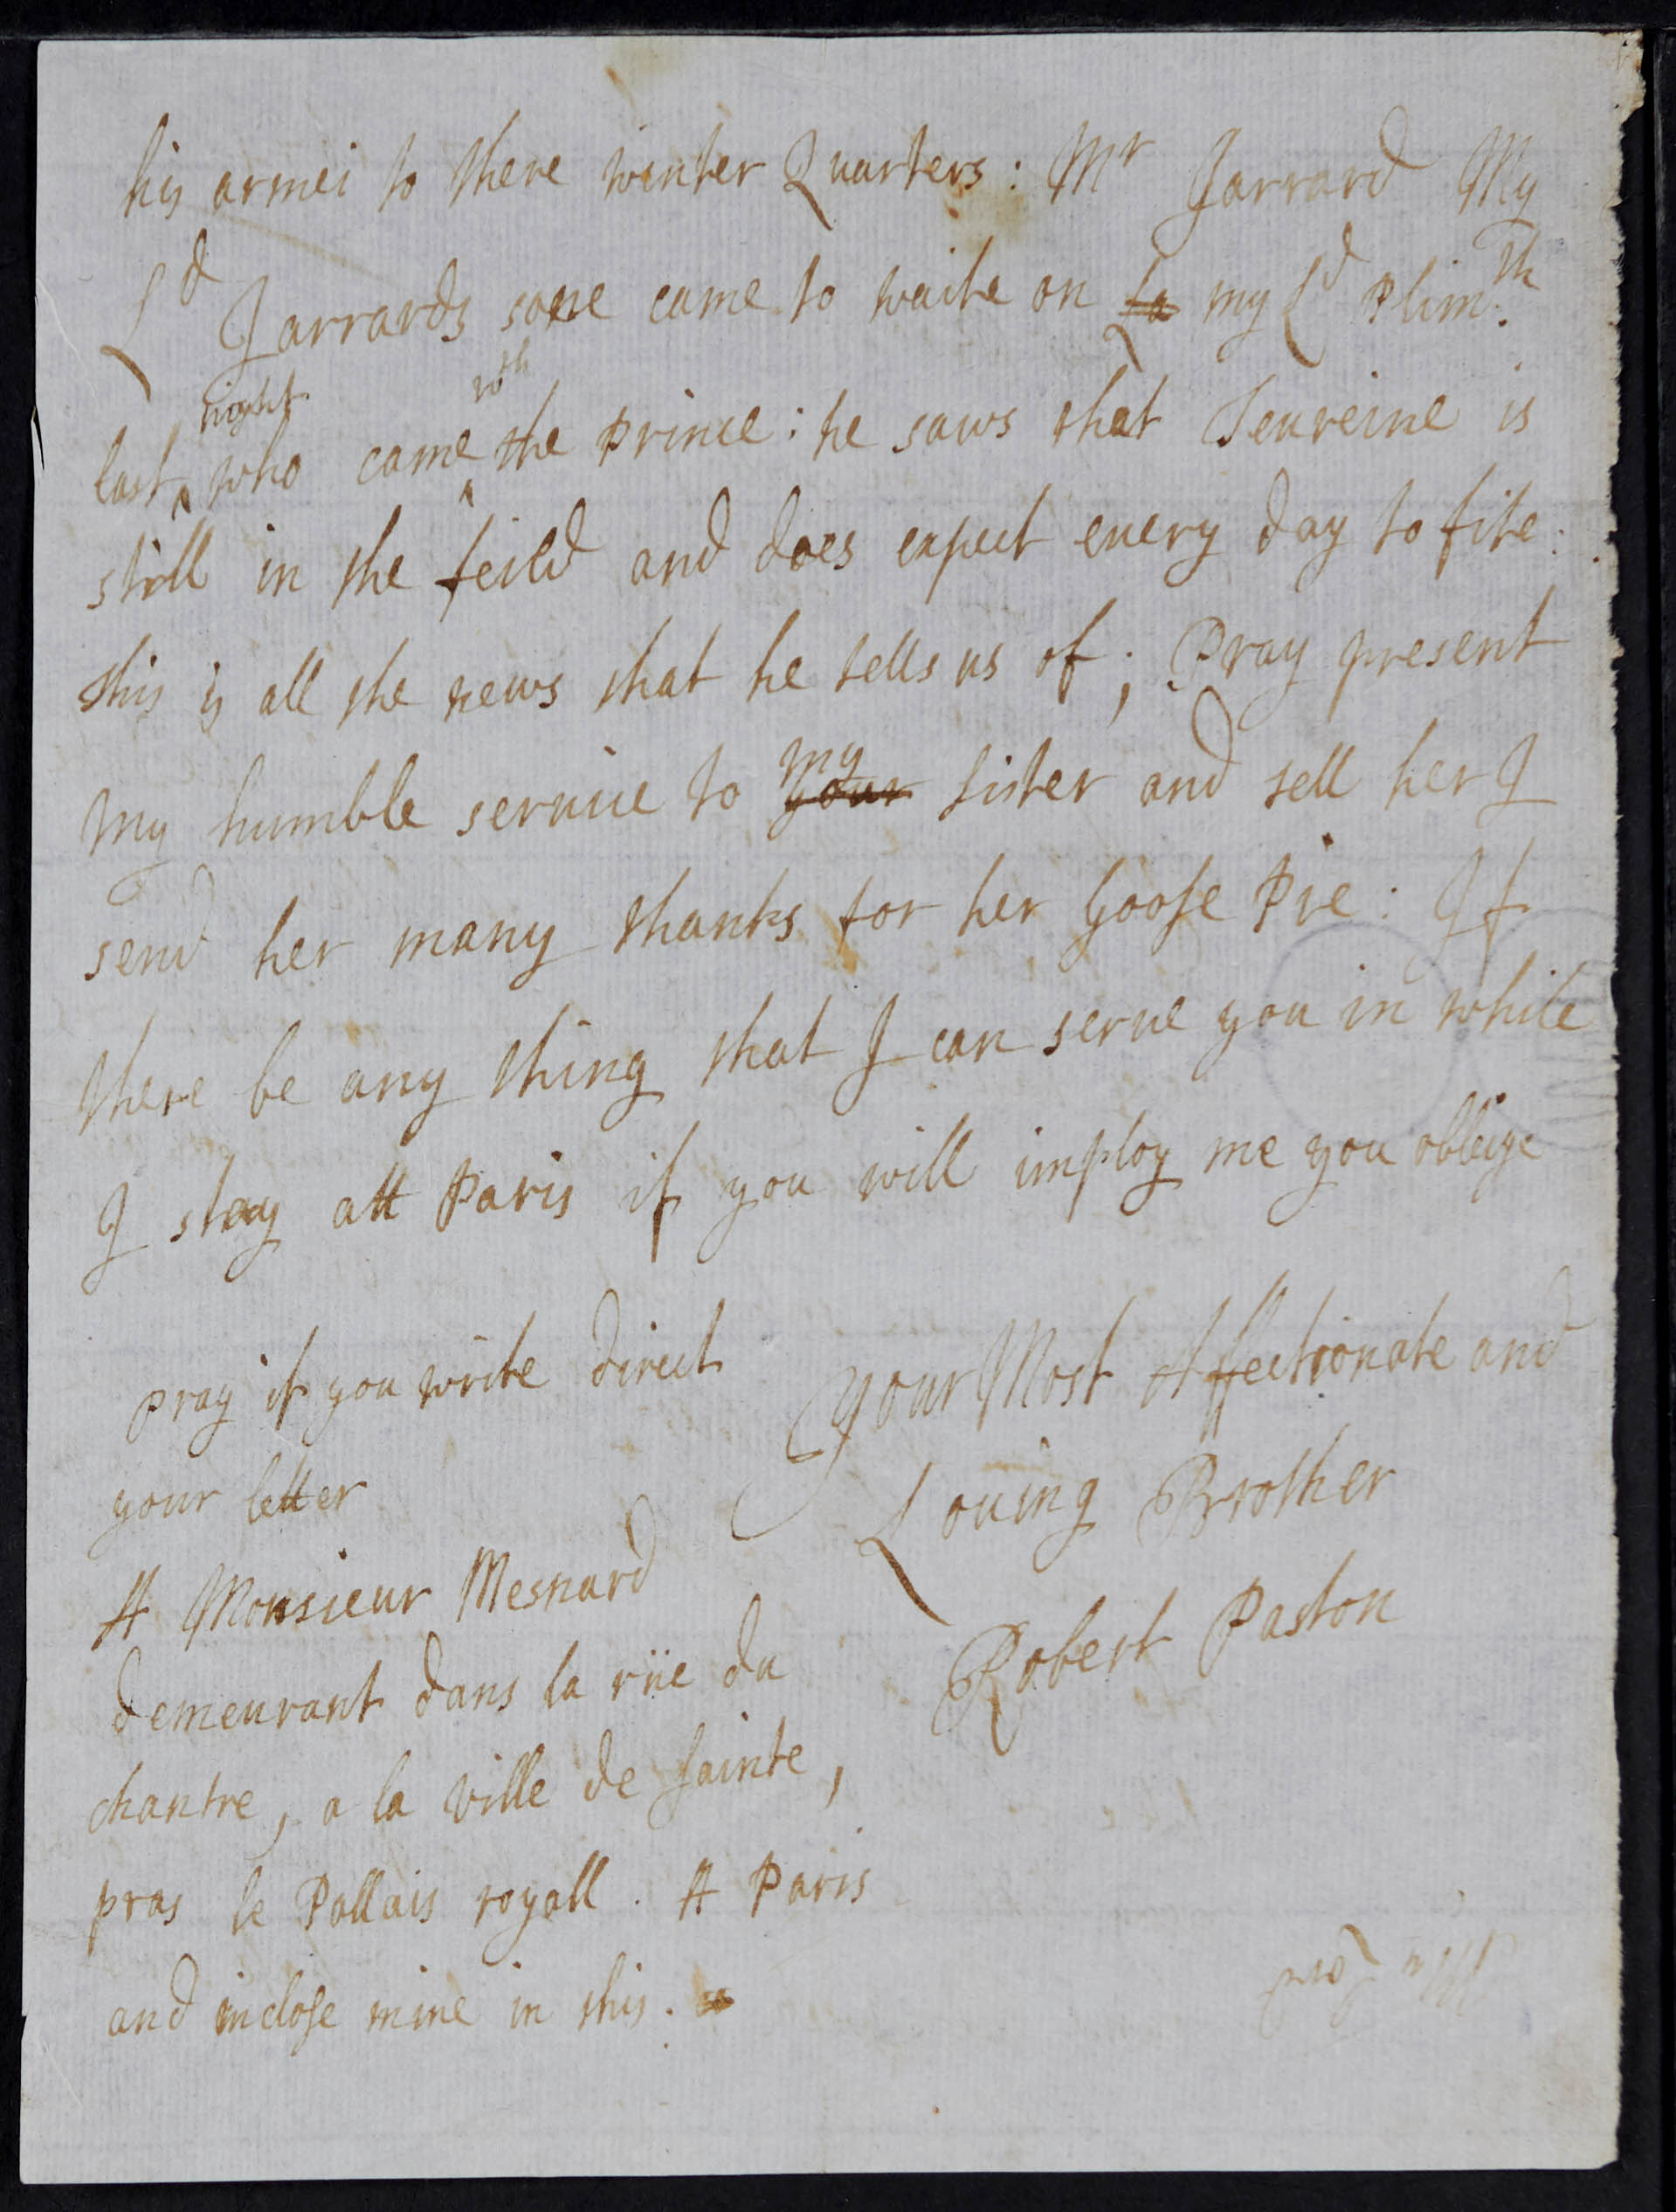 his armei to there winter Quarters: Mr Jarrard My
Ld Jarrards sone came to waite on La my Ld Plimth
last night who came wth the Prince: he saws that Teureine is
still in the feild and does expect euery day to fite:
this is all the news that he tells us of; Pray present
my humble seruice to your my sister and tell her I
send her many thanks for her Goose Pie: If
there be any thing that I can serue you in while
I stay att Paris if you will imploy me you obleige
your Most Affectionate and
Louing Brother
Robert Paston
pray if you write direct
your letter
A Monsieur Mesnard
demeurant dans la rüe du
chantre, a la ville de sainte,
pras le Pallais royall. A Paris
and inclose mine in this.